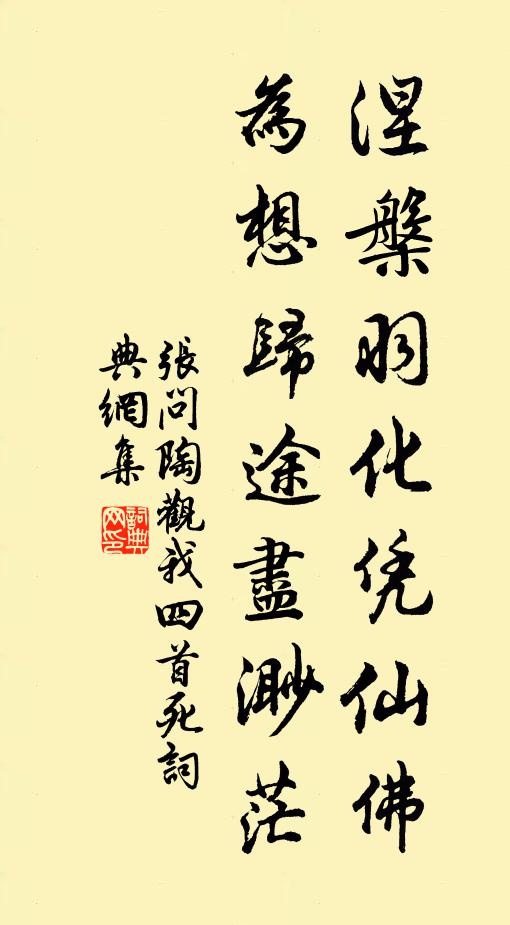 涅槃羽化凭仙佛
為想歸途盡渺茫
張問陶觀我四首死詞
典網集
詞典網印